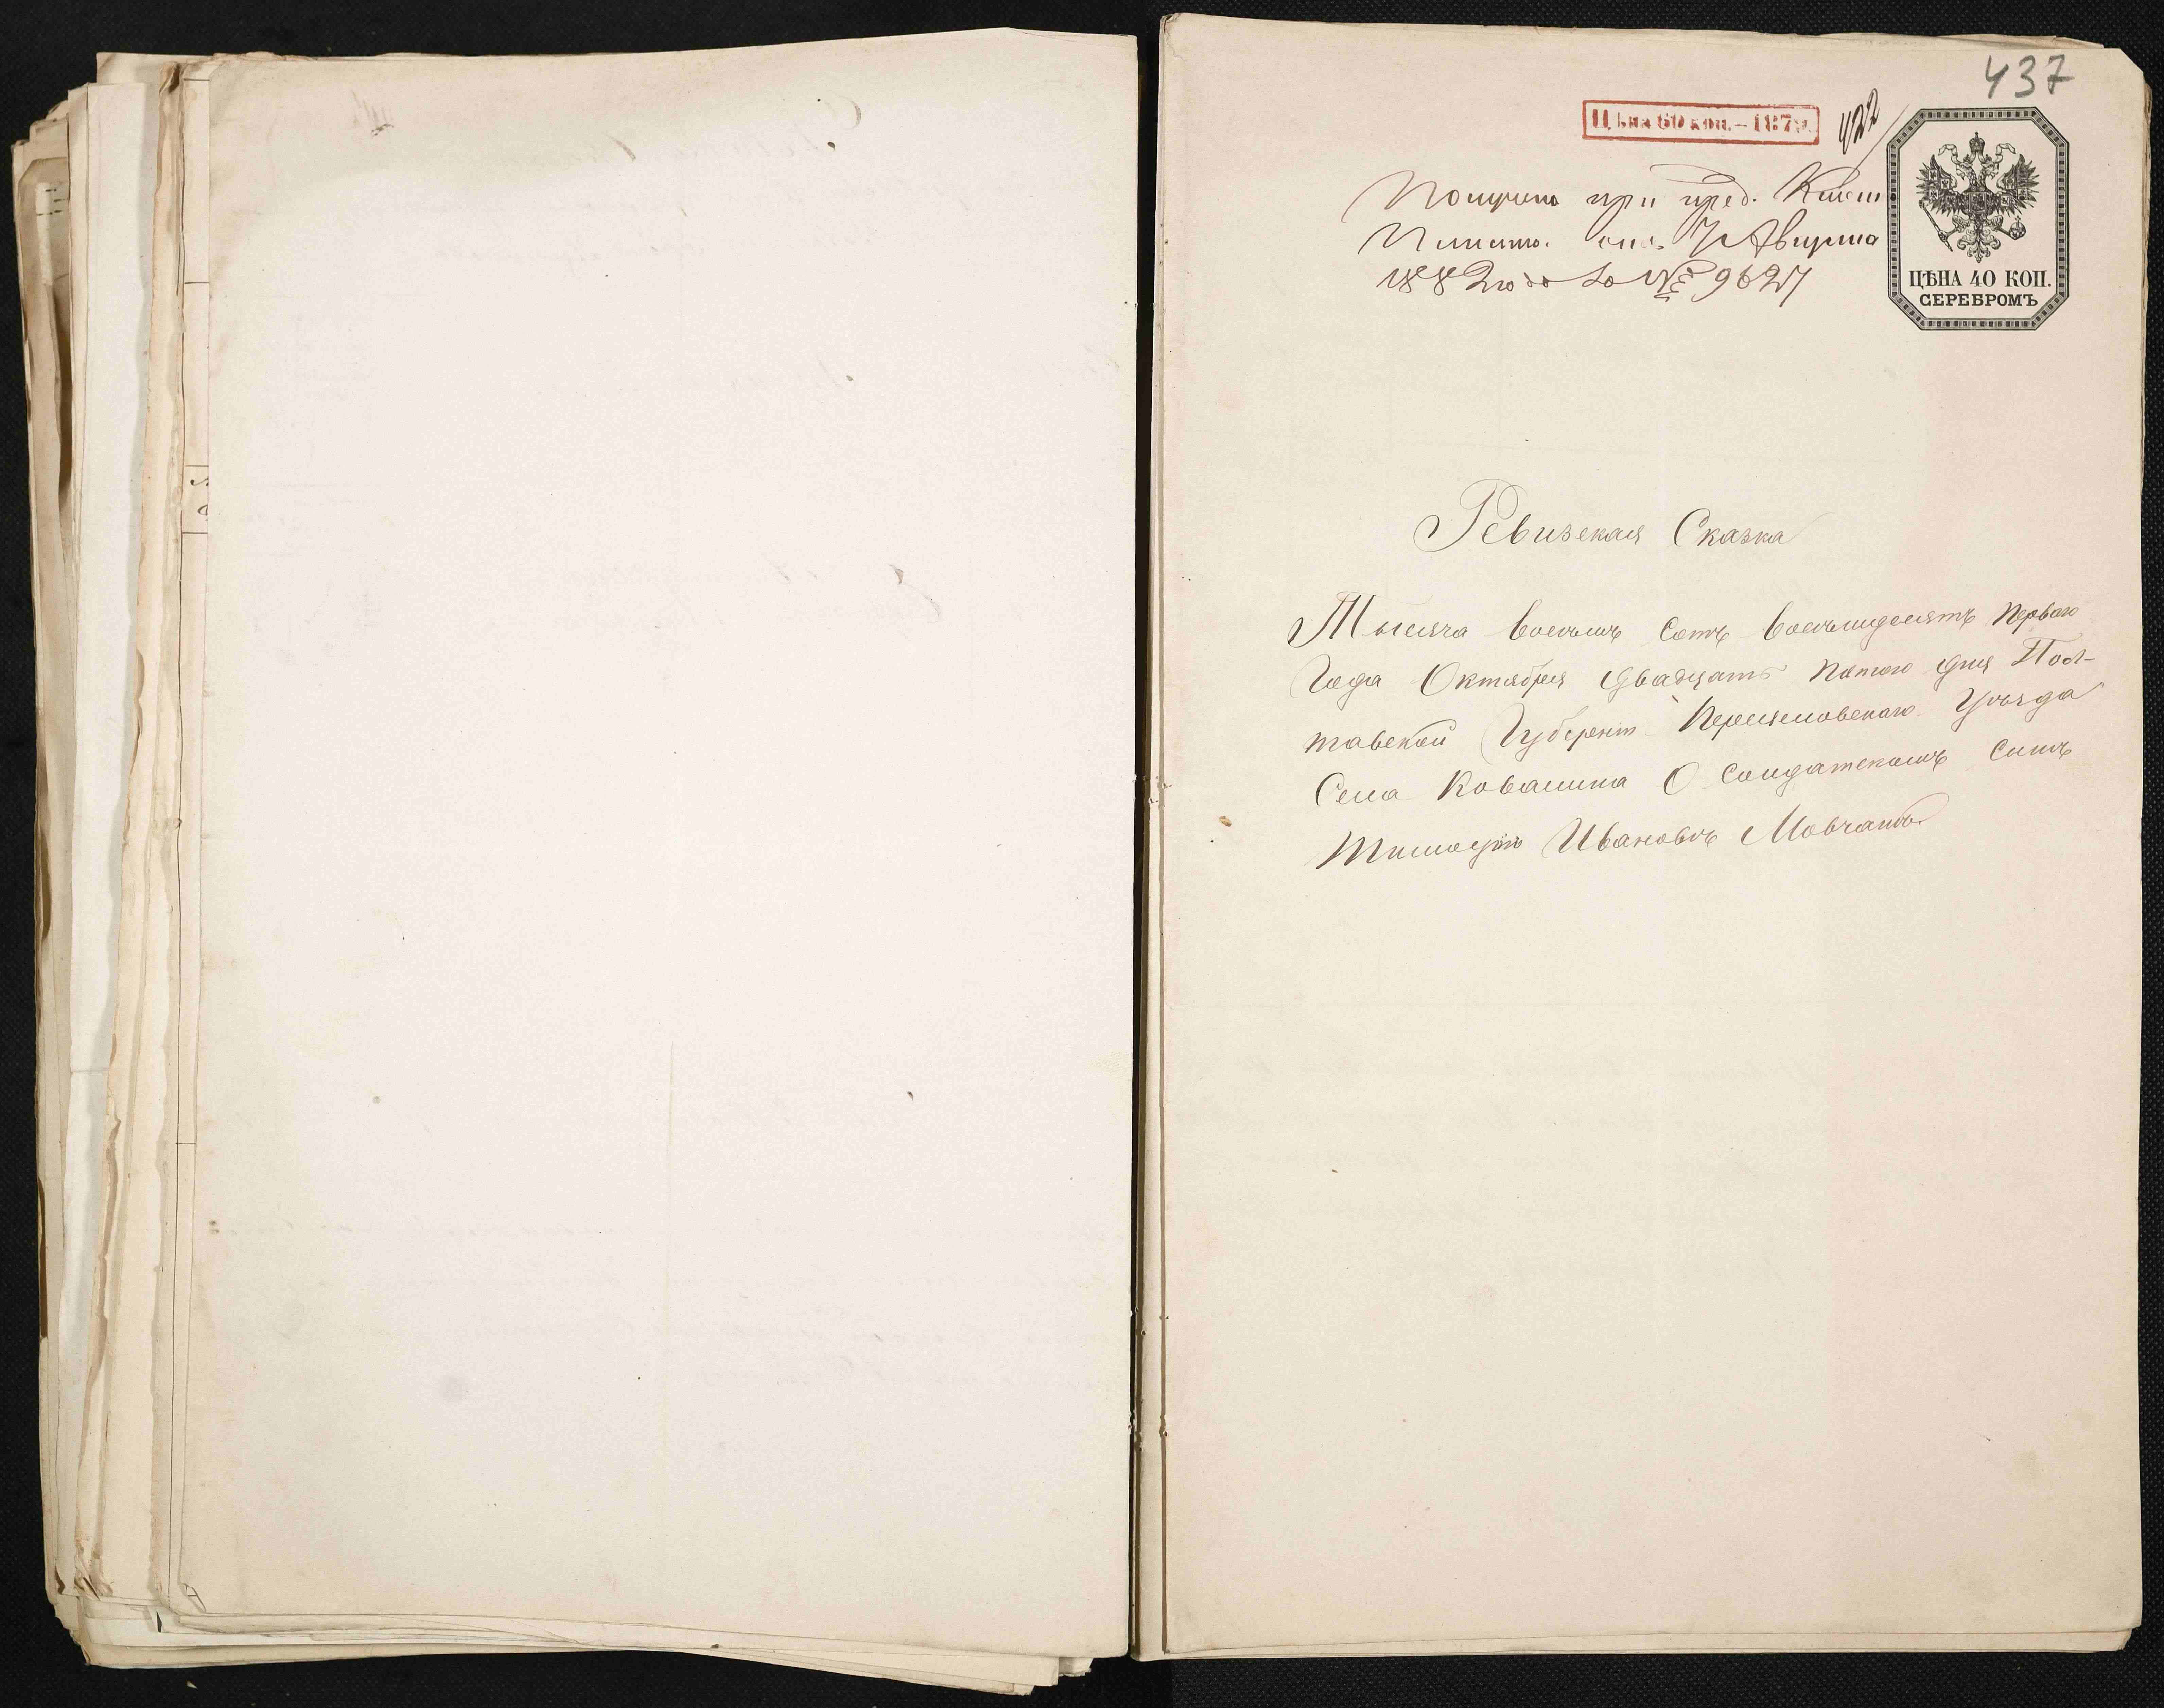 437
422
Цѣна 60 коп.–1879.
ЦѢНА 40 КОП.
СЕРЕБРОМЪ
при пред.
7 Августа
1882 года за № 9627
Ревизская Сказка
Тысяча восемь сотъ восемьдесятъ перваго
Года Октября двадцать пятого дня Пол-
тавской Губерніи Переяславского Уѣзда
Села Ковалина О Солдатскомъ Сынѣ
Тимофѣѣ Ивановѣ Мовчанѣ.